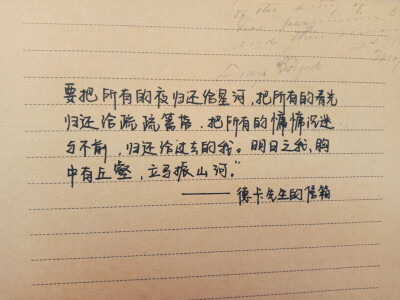 要把所有的夜归还给星河,把所有的春光
归还给疏疏篱落,把所有的慵慵沉迷
与不前,归还给过去的我。明日之我,胸
中有丘壑,立马振山河。"
——德卡先生的信箱